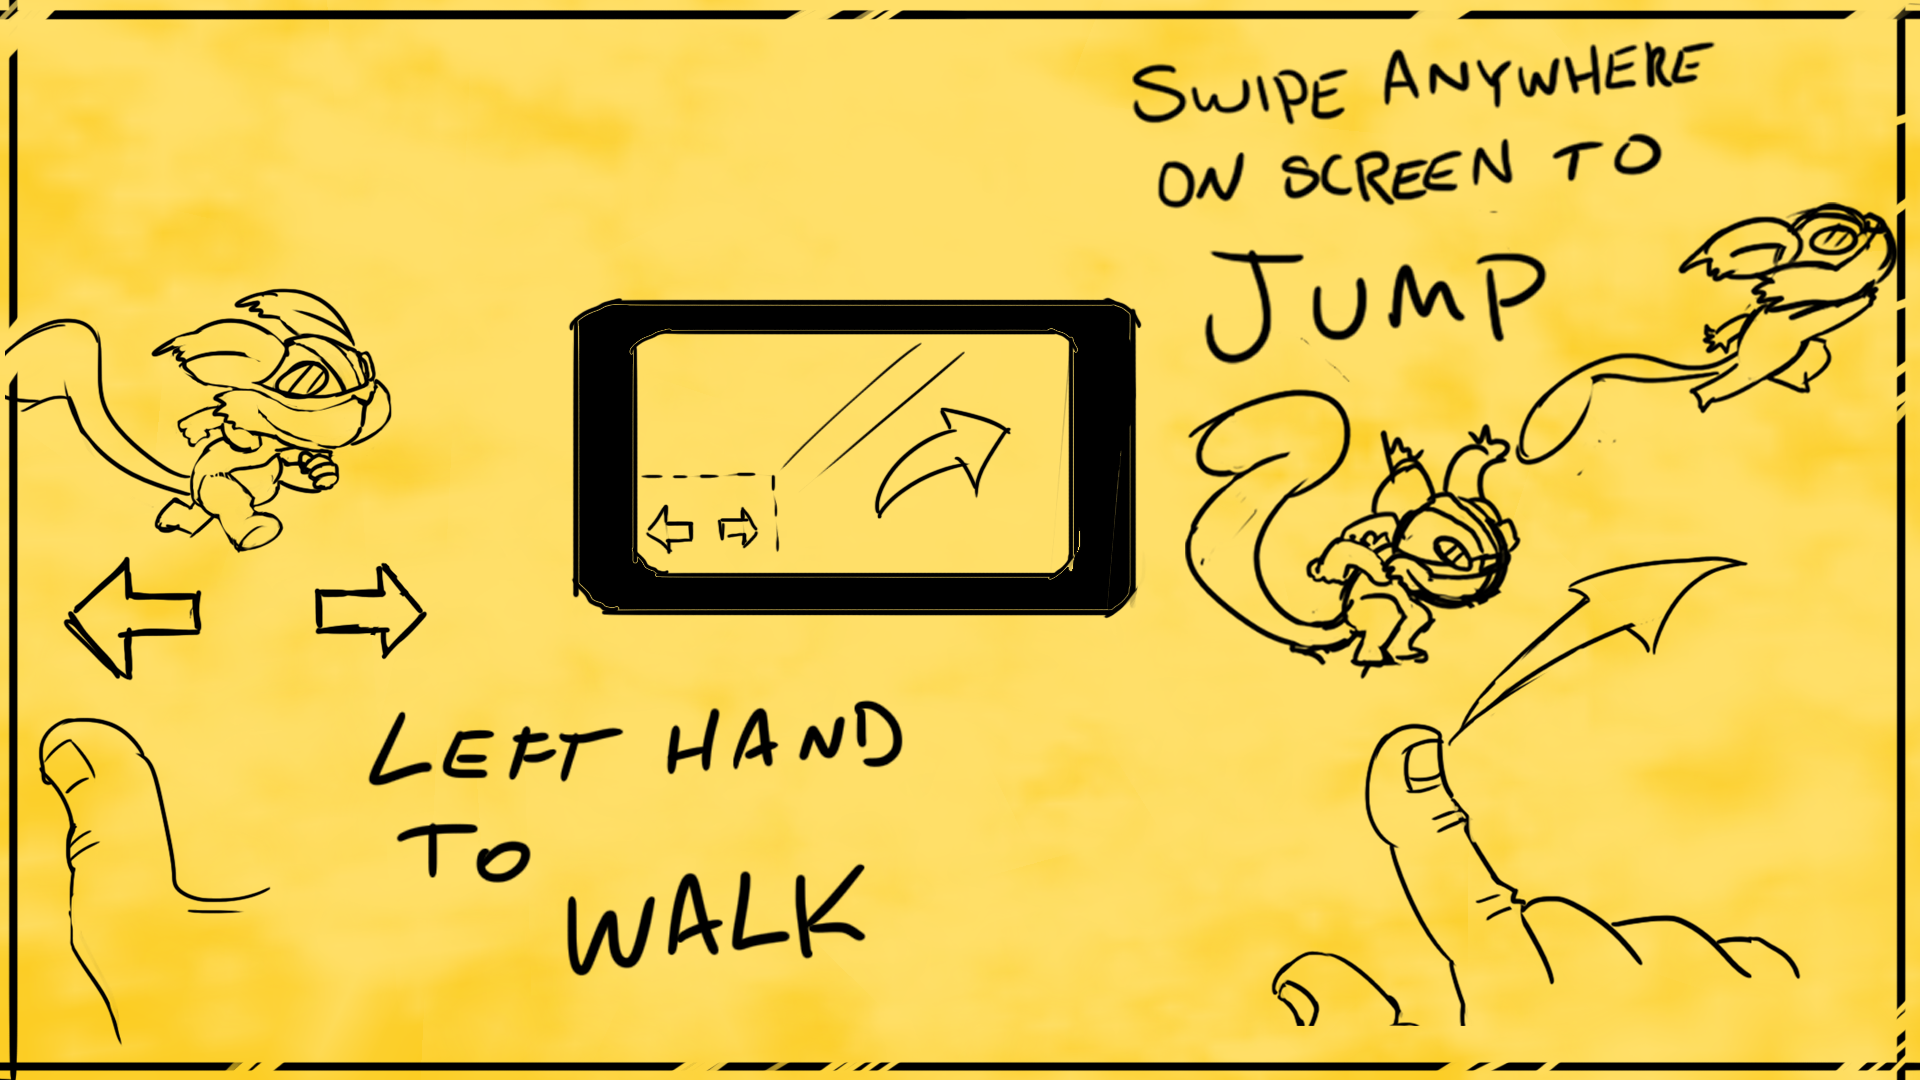 SWIPE ANYWHERE
ON SCREEN TO
JUMP
LEFT HAND
TO
WALK